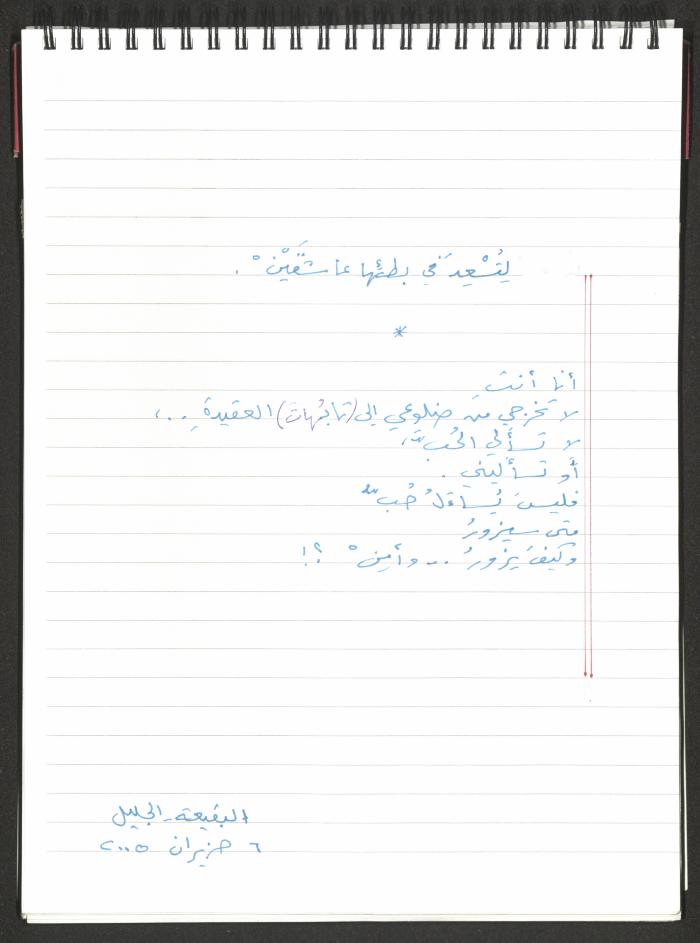 لِتُسْعِدَ في بطئها عاشقَيْنْ .
*
أنا أنتِ
لا تخرجي من ضلوعي إلى (تابُهاتَ) العقيدةِ ..،
لا تسألي الحُبَّ،
أو تسأليني .
فليسَ يُساءَلُ حُبٌّ
متى سيزورُ
وكيفَ يزورُ .. وأين ْ ؟!
البقيعة - الجليل
٦ حزيران ٢٠٠٥